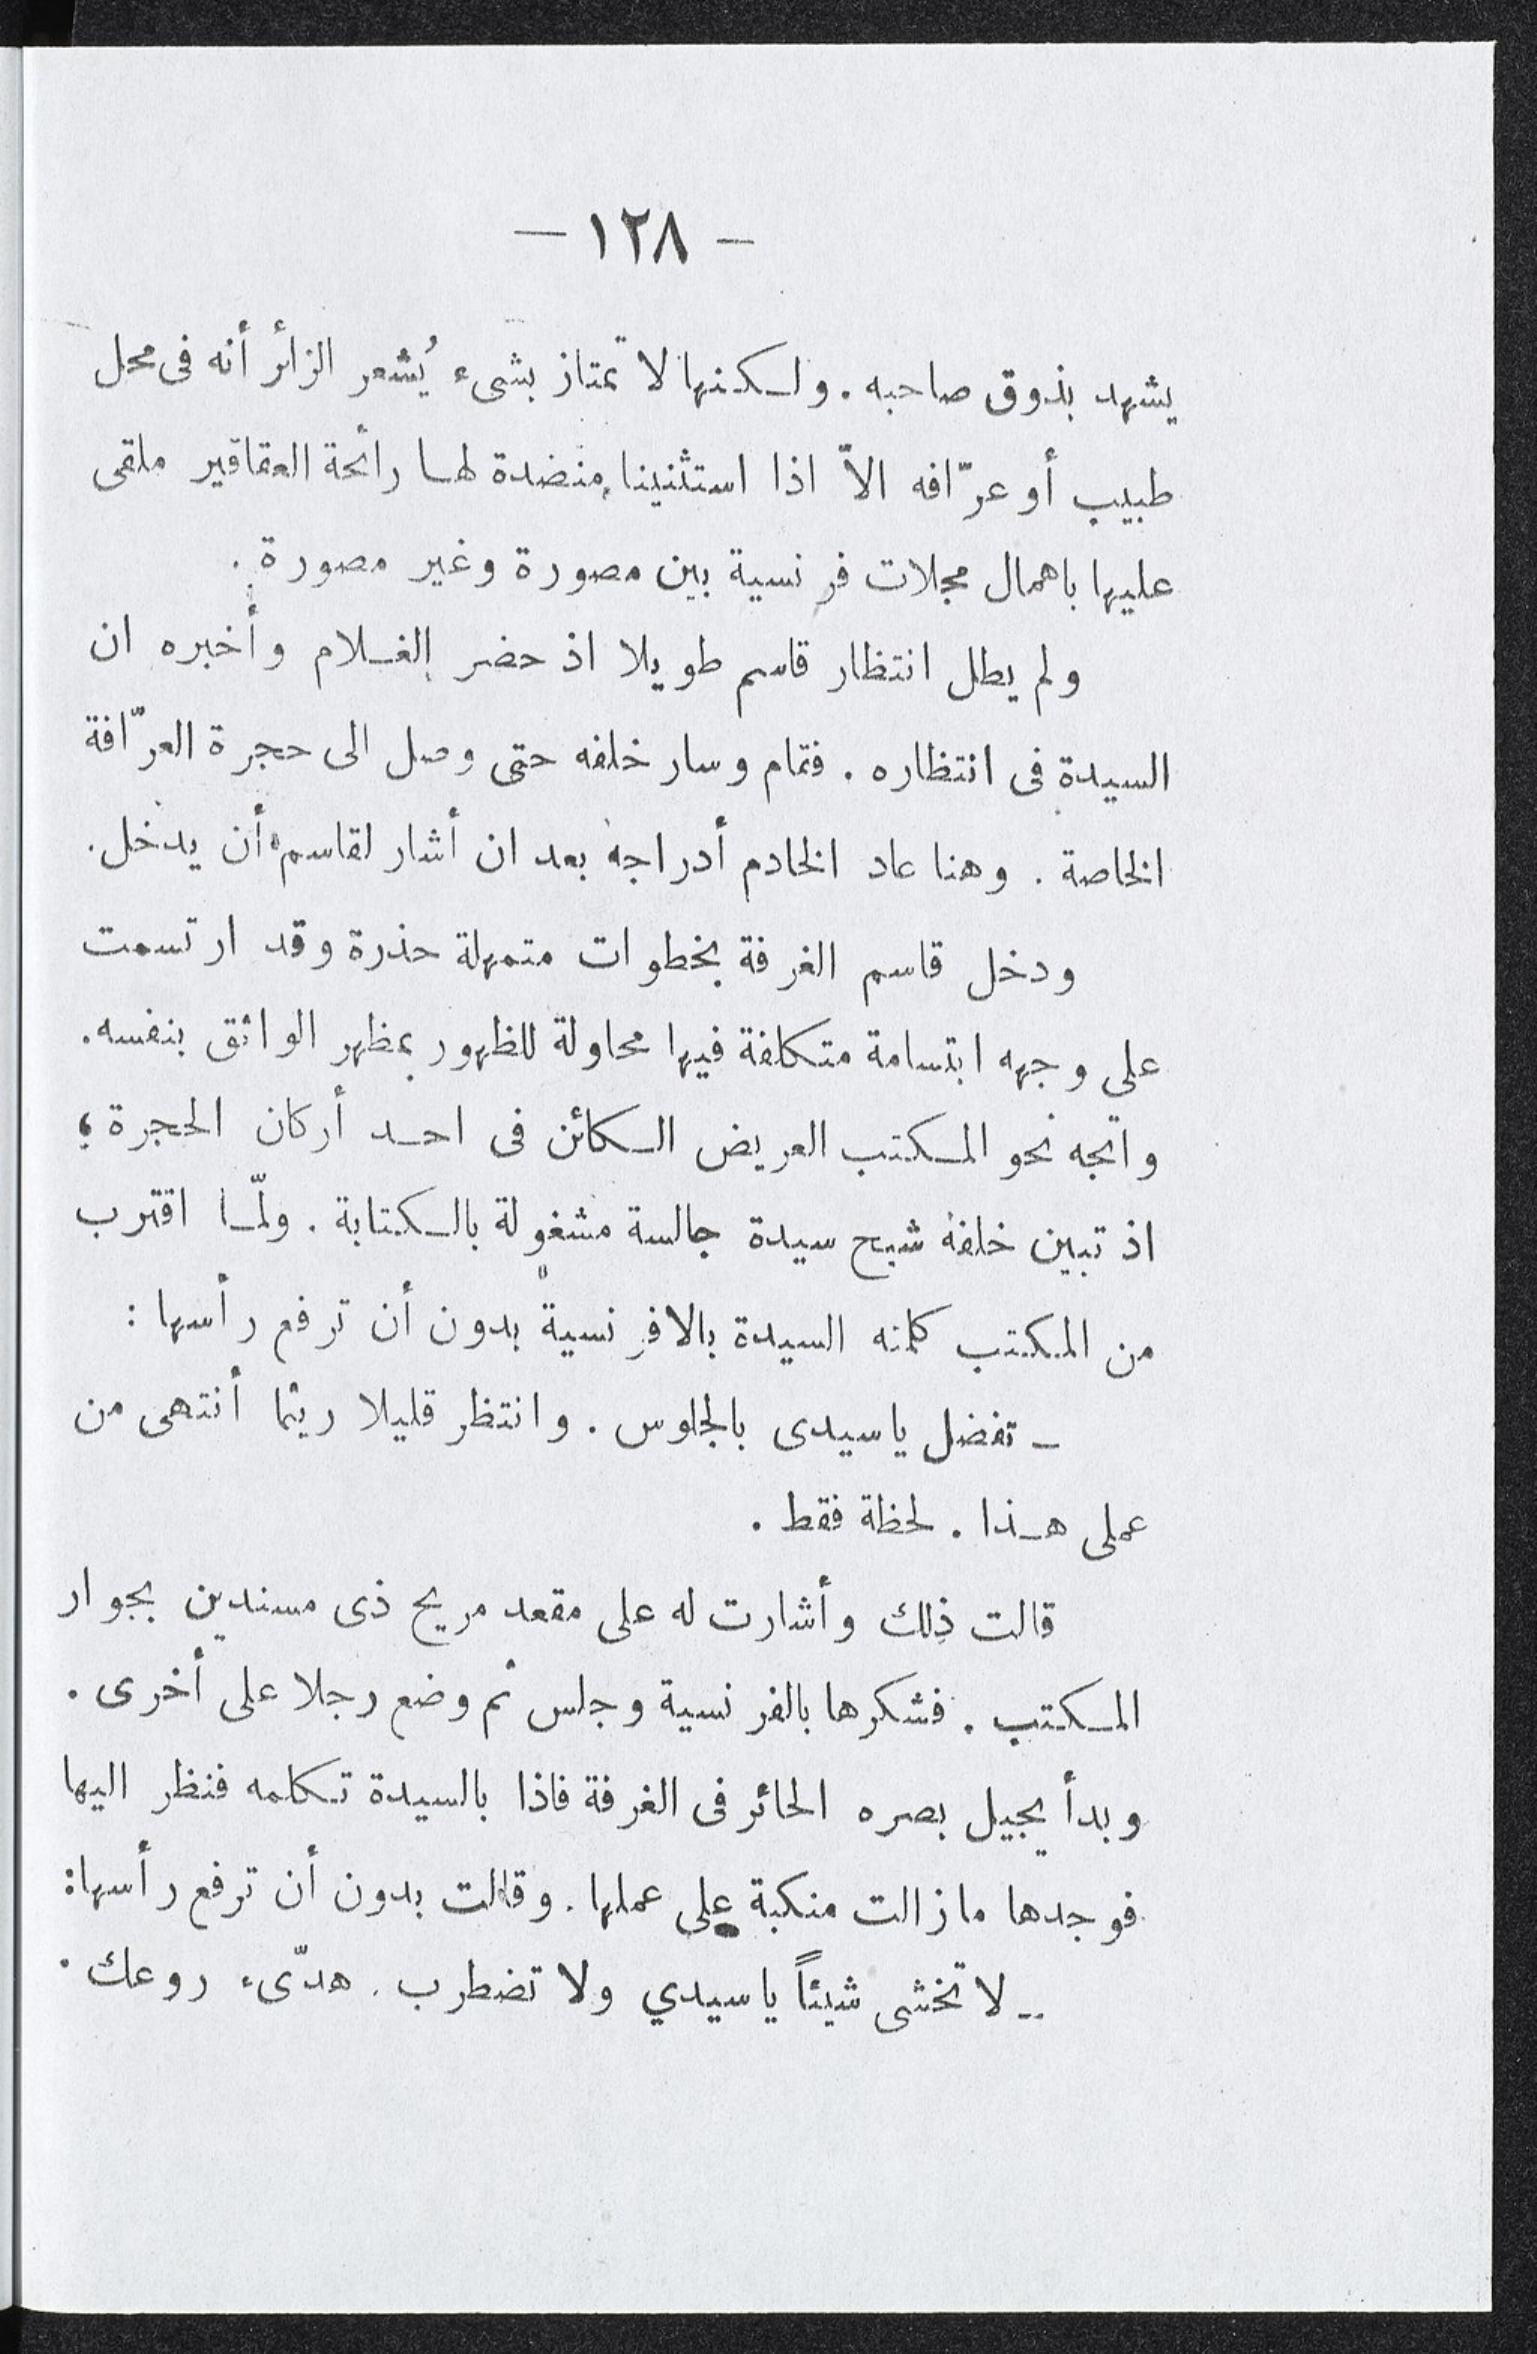 — ١٢٨ —
يشهد بذوق صاحبه . ولكنها لا تمتاز بشىء يُشعر الزائر أنه فى محل
طبيب أو عرّافه الاّ اذا استثنينا منضدة لها رائحة العقاقير ملقى
عليها باهمال مجلات فرنسية بين مصورة وغير مصورة .
ولم يطل انتظار قاسم طويلا اذ حضر الغلام وأخبره ان
السيدة فى انتظاره . فقام وسار خلفه حتى وصل الى حجرة العرّافة
الخاصة . وهنا عاد الخادم أدراجه بعد ان أشار لقاسم أن يدخل .
ودخل قاسم الغرفة بخطوات متمهلة حذرة وقد ارتسمت
على وجهه ابتسامة متكلفة فيها محاولة للظهور بمظهر الواثق بنفسه .
واتجه نحو المكتب العريض الكائن فى احد أركان الحجرة ؛
اذ تبين خلفه شبح سيدة جالسة مشغولة بالكتابة . ولمّا اقترب
من المكتب كلمته السيدة بالافرنسية بدون أن ترفع رأسها :
— تفضل يا سيدى بالجلوس . وانتظر قليلا ريثما أنتهى من
عملى هذا . لحظة فقط .
قالت ذلك وأشارت له على مقعد مريح ذى مسندين بجوار
المكتب . فشكرها بالفرنسية وجلس ثم وضع رجلا على أخرى .
وبدأ يجيل بصره الحائر فى الغرفة فاذا بالسيدة تكلمه فنظر اليها
فوجدها ما زالت منكبة على عملها . وقالت بدون أن ترفع رأسها :
— لا تخشى شيئاً يا سيدي ولا تضطرب . هدّىء روعك .